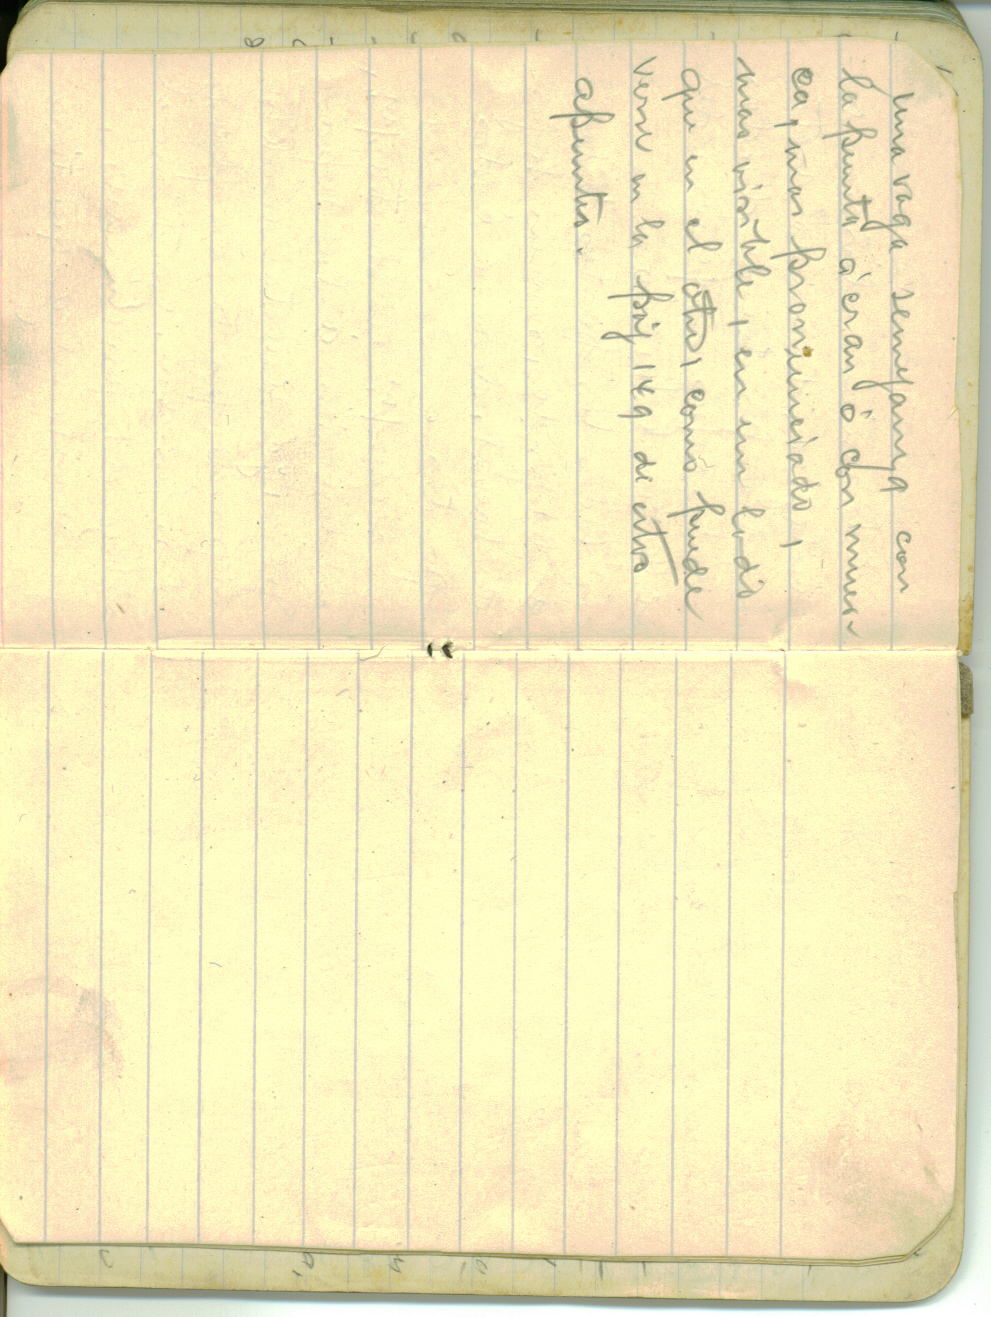 una vaga semejanza con
la punta ó eran ó con mues-
ca, mas pronunciado,
mas visible, en un lado
que en el otro, como puede
verse en la pag 149 de estos
apuntes.